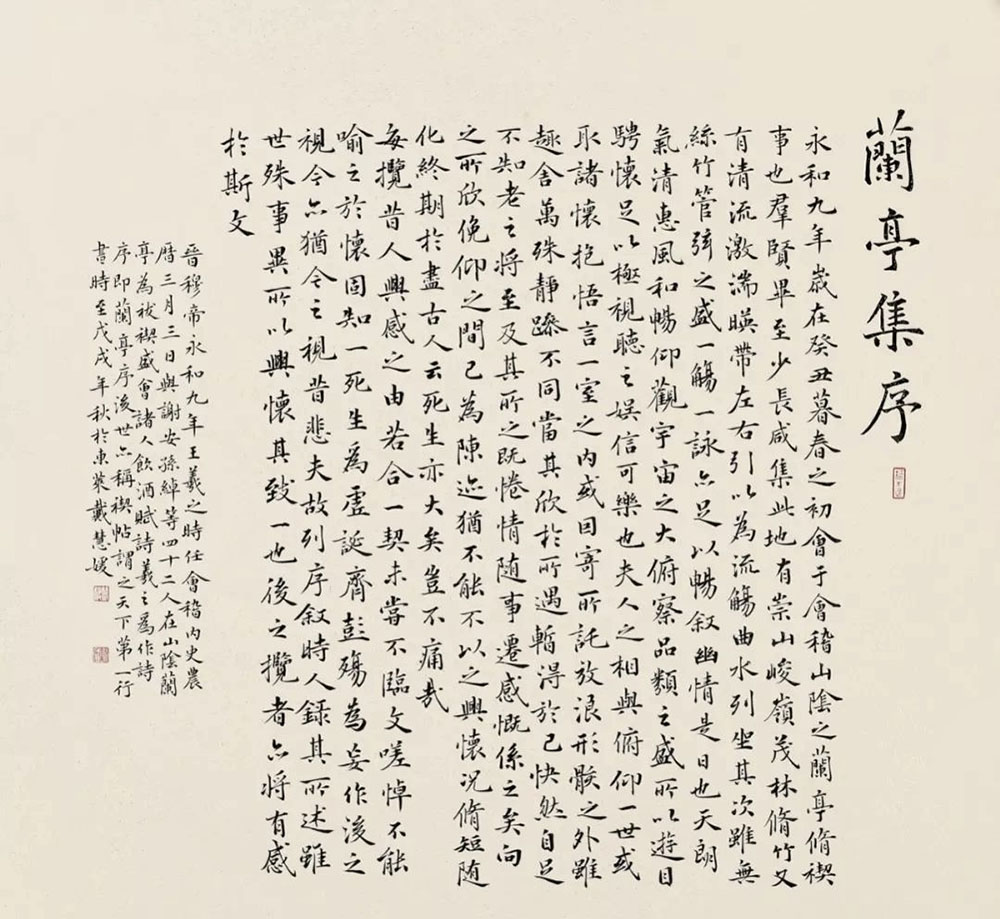 蘭亭集序
永和九年歲在癸丑暮春之初會于會稽山陰之蘭亭脩禊
事也羣賢畢至少長咸集此地有崇山峻嶺茂林脩竹又
有清流激湍暎帶左右引以為流觴曲水列坐其次雖無
絲竹管弦之盛一觴一詠亦足以暢叙幽情是日也天朗
氣清惠風和暢仰觀宇宙之大俯察品類之盛所以遊目
騁懷足以極視聽之娛信可樂也夫人之相與俯仰一世或
取諸懷抱悟言一室之內或因寄所託放浪形骸之外雖
趣舍萬殊靜躁不同當其欣於所遇暫得於己快然自足
不知老之將至及其所之既惓情隨事遷感慨係之矣向
之所欣俛仰之間已為陳迹猶不能不以之興懷況脩短隨
化終期於盡古人云死生亦大矣豈不痛哉
每攬昔人興感之由若合一契未嘗不臨文嗟悼不能
喻之於懷固知一死生為虛誕齊彭殤為妄作後之
視今亦猶今之視昔悲夫故列序叙時人錄其所述雖
世殊事異所以興懷其致一也後之攬者亦將有感
於斯文
晉穆帝永和九年王羲之時任會稽內史農
曆三月三日與謝安孫綽等四十二人在山陰蘭
亭為祓禊盛會諸人飲酒賦詩羲之為作詩
序即蘭亭序後世亦稱禊帖謂之天下第一行
書時至戊戌年秋於東萊戴慧媛